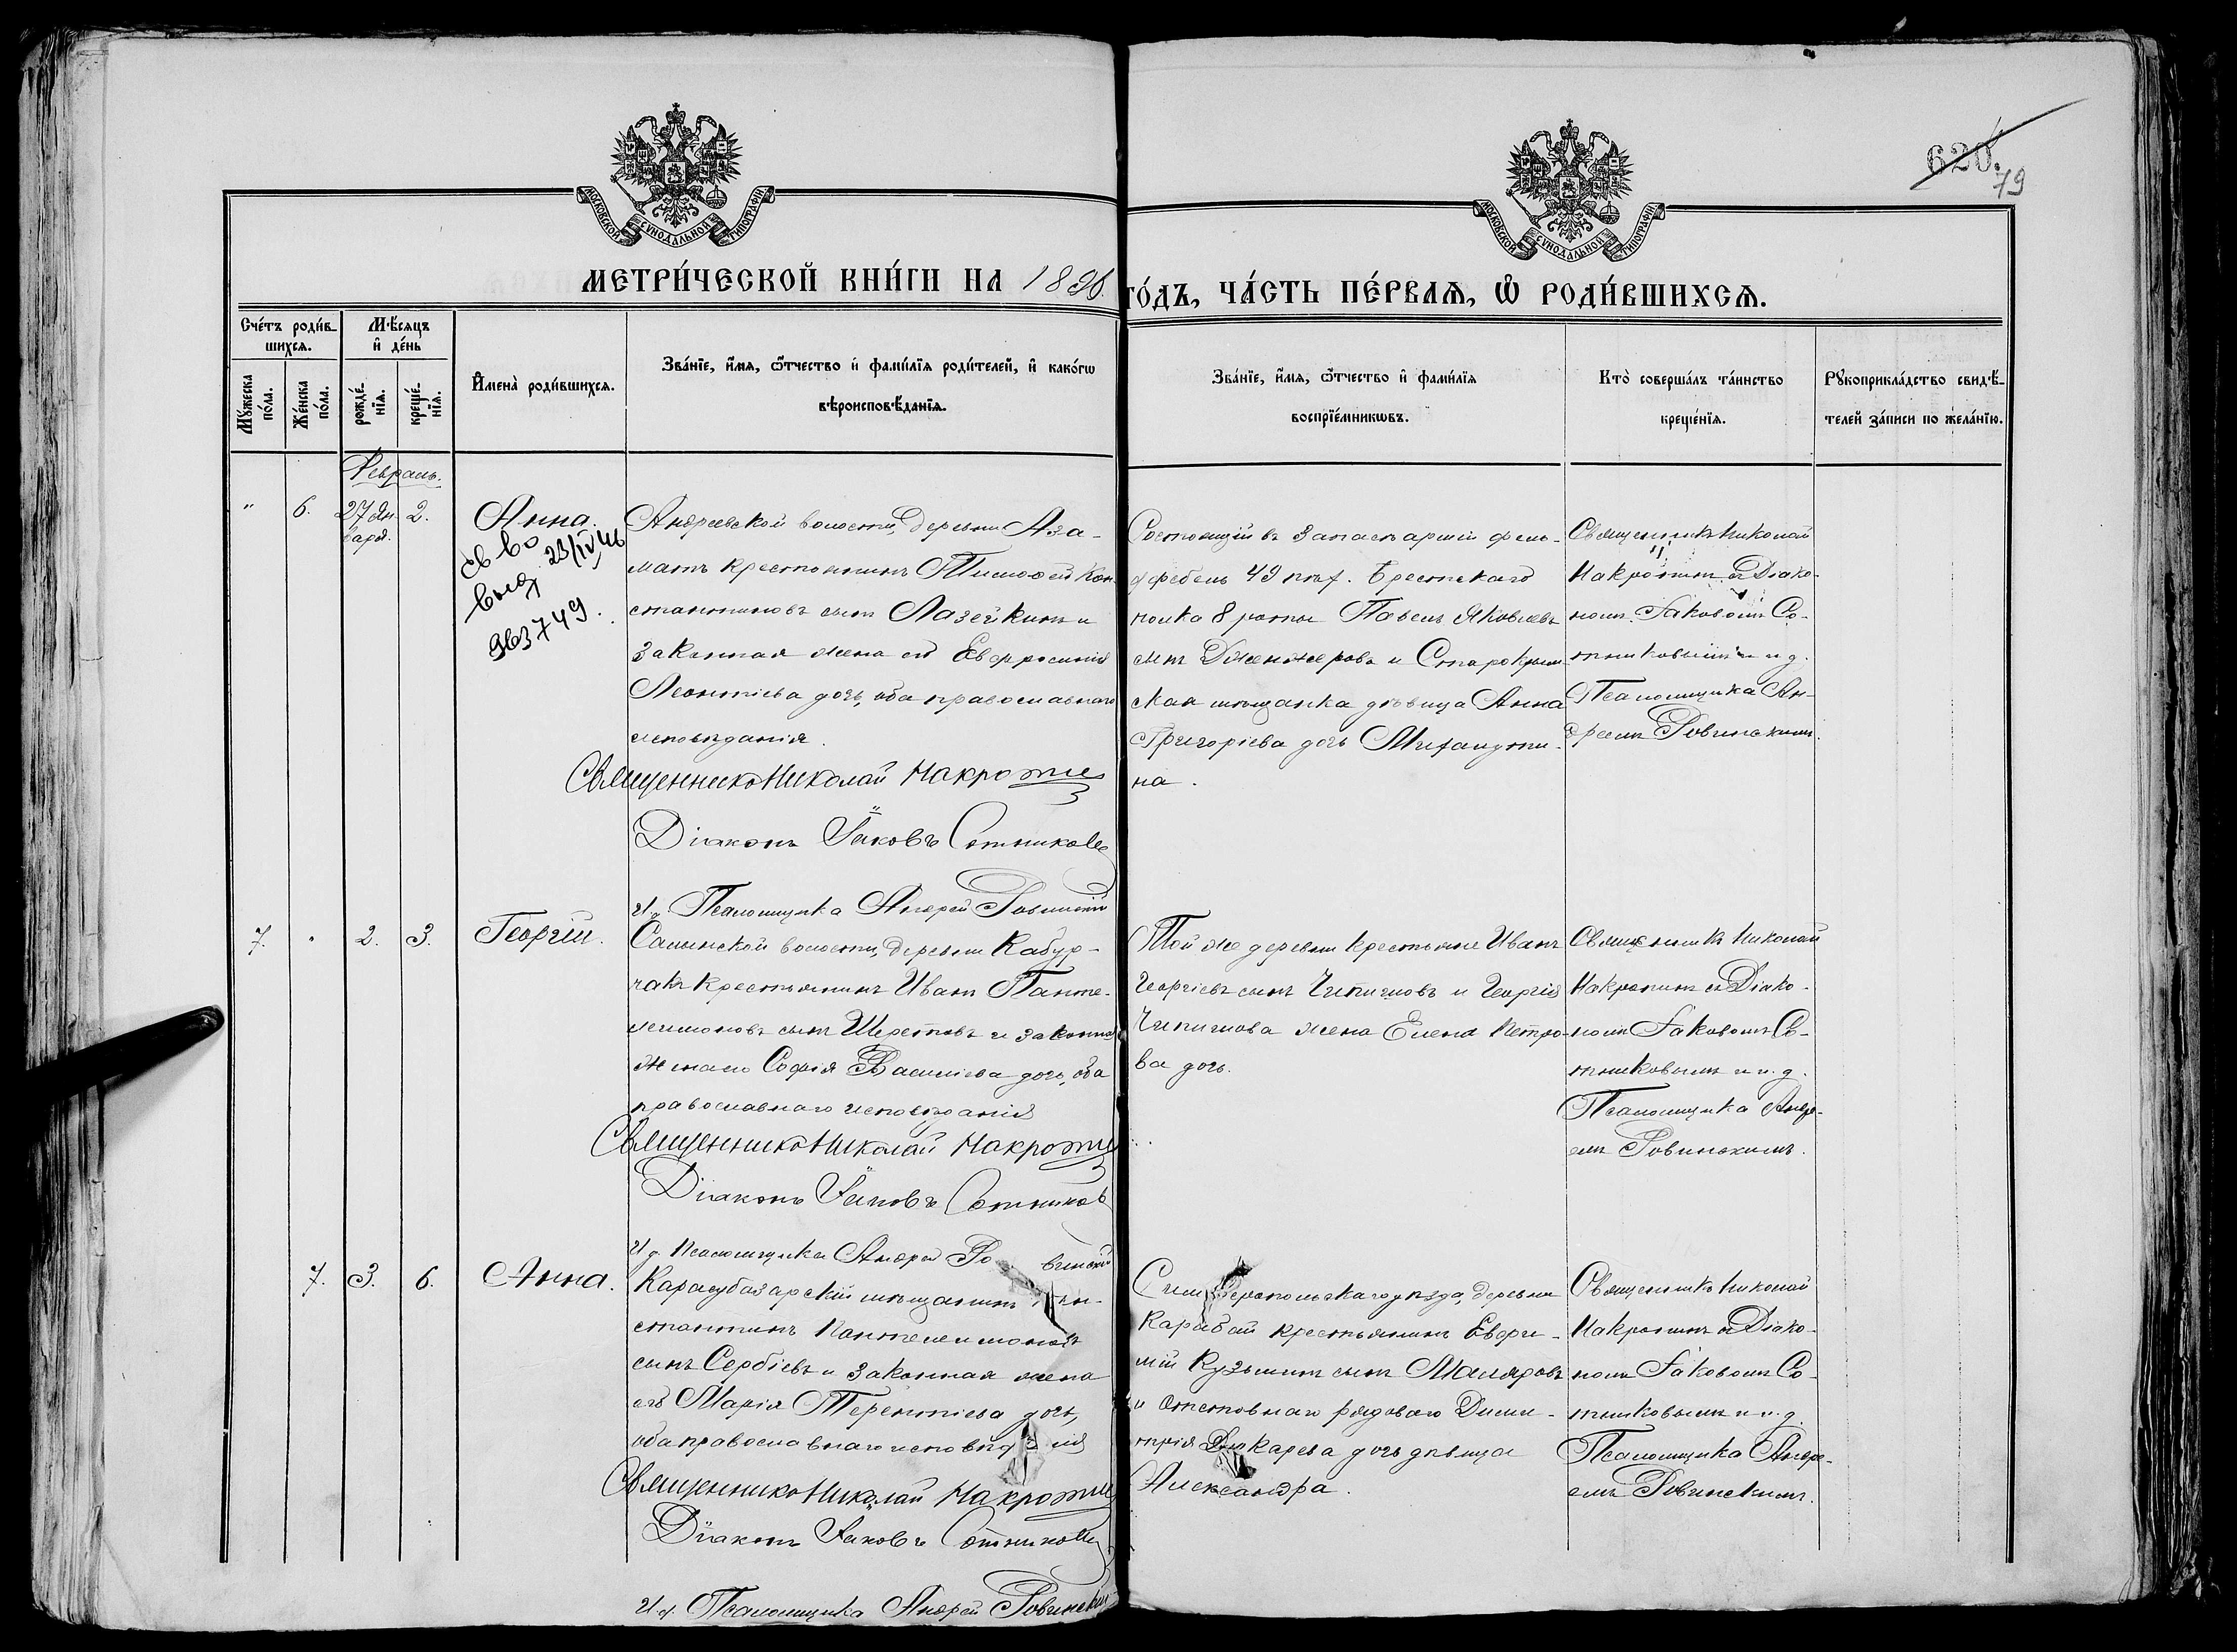 620.
79
МОСКОВСКОЙ СѴНОДАЛЬНОЙ ТИПОГРАФІИ
МОСКОВСКОЙ СѴНОДАЛЬНОЙ ТИПОГРАФІИ
МЕТРИ́ЧЕСКОЙ КНИ́ГИ НА 1896.
ГО́ДЪ, ЧА́СТЬ ПЕ́РВАѦ, Ѡ҆ РОДИ́ВШИХСѦ.
Сче́тъ роди́в-
шихсѧ.
Мꙋ́жеска
по́ла.
Же́нска
по́ла.
Мѣ́сѧцъ
и҆ де́нь
рожде́-
нїѧ.
креще́-
нїѧ.
И҆мена̀ роди́вшихсѧ.
Зва́нїе, и҆́мѧ, ѻ҆́тчество и҆ фами́лїѧ роди́телей, и҆ како́гѡ
вѣроисповѣ́данїѧ.
Зва́нїе, и҆́мѧ, ѻ҆́тчество и҆ фами́лїѧ
воспрїе́мникѡвъ.
Кто̀ соверша́лъ та́инство
креще́нїѧ.
Рꙋкоприкла́дство свидѣ́-
телей за́писи по жела́нїю.
Февраль.
" 6. 27 Ян-
варя. 2.
Анна.
св во
выд 23/IV 46
963749.
Андреевской волости, деревни Аза-
матъ крестьянинъ Тимофей Кон-
стантиновъ сынъ Лазейкинъ и
законная жена его Евфросинія
Леонтіева дочь, оба православнаго
исповѣданія.
Священникъ Николай Макротин
Діаконъ Іаковъ Сотниковъ
И д. Псаломщика Андрей Ровинскій
Состоящій въ запасѣ старшій фель-
дфебель 49 пѣх. Брестскаго
полка 8 роты Павелъ Яковлевъ
сынъ и Старокрым-
ская мѣщанка дѣвица Анна
Григоріева дочь
на.
Священникъ Николай
Макротинъ съ Діако-
номъ Іаковомъ Со-
тниковымъ и и. д.
Псаломщика Ан-
дреемъ Ровинскимъ.
7. " 2. 3.
Георгій.
Салынской волости, деревни Кабур-
чакъ крестьянинъ Иванъ Панте-
леимоновъ сынъ Шерстовъ и законная
жена его Софія Василіева дочь, оба
православнаго исповѣданія
Священникъ Николай Макротин
Діаконъ Іаковъ Сотников
И д. Псаломщика Андрей Ровинскій
Той же деревни крестьяне Иванъ
Георгіевъ сынъ Чипчиковъ и Георгія
Чипчикова жена Елена Петро-
ва дочь.
Священникъ Николай
Макротинъ съ Діако-
номъ Іаковомъ Со-
тниковымъ и и. д.
Псаломщика Андре-
емъ Ровинскимъ.
7. 3. 6.
Анна.
Карасубазарскій мѣщанинъ Кон-
стантинъ Пантелеимоновъ
сынъ Сербіевъ и законная жена
его Марія Терентіева дочь,
оба православнаго исповѣданія
Священникъ Николай Макротин
Діаконъ Іаковъ Сотников
И д. Псаломщика Андрей Ровинскій
Симферопольскаго уѣзда, деревни
Карабай крестьянинъ Евфи-
мій Кузьминъ сынъ Маляровъ
и отставнаго рядоваго Дими-
трія дочь дѣвица
Александра.
Священникъ Николай
Макротинъ съ Діако-
номъ Іаковомъ Со-
тниковымъ и и. д.
Псаломщика Андре-
емъ Ровинскимъ.